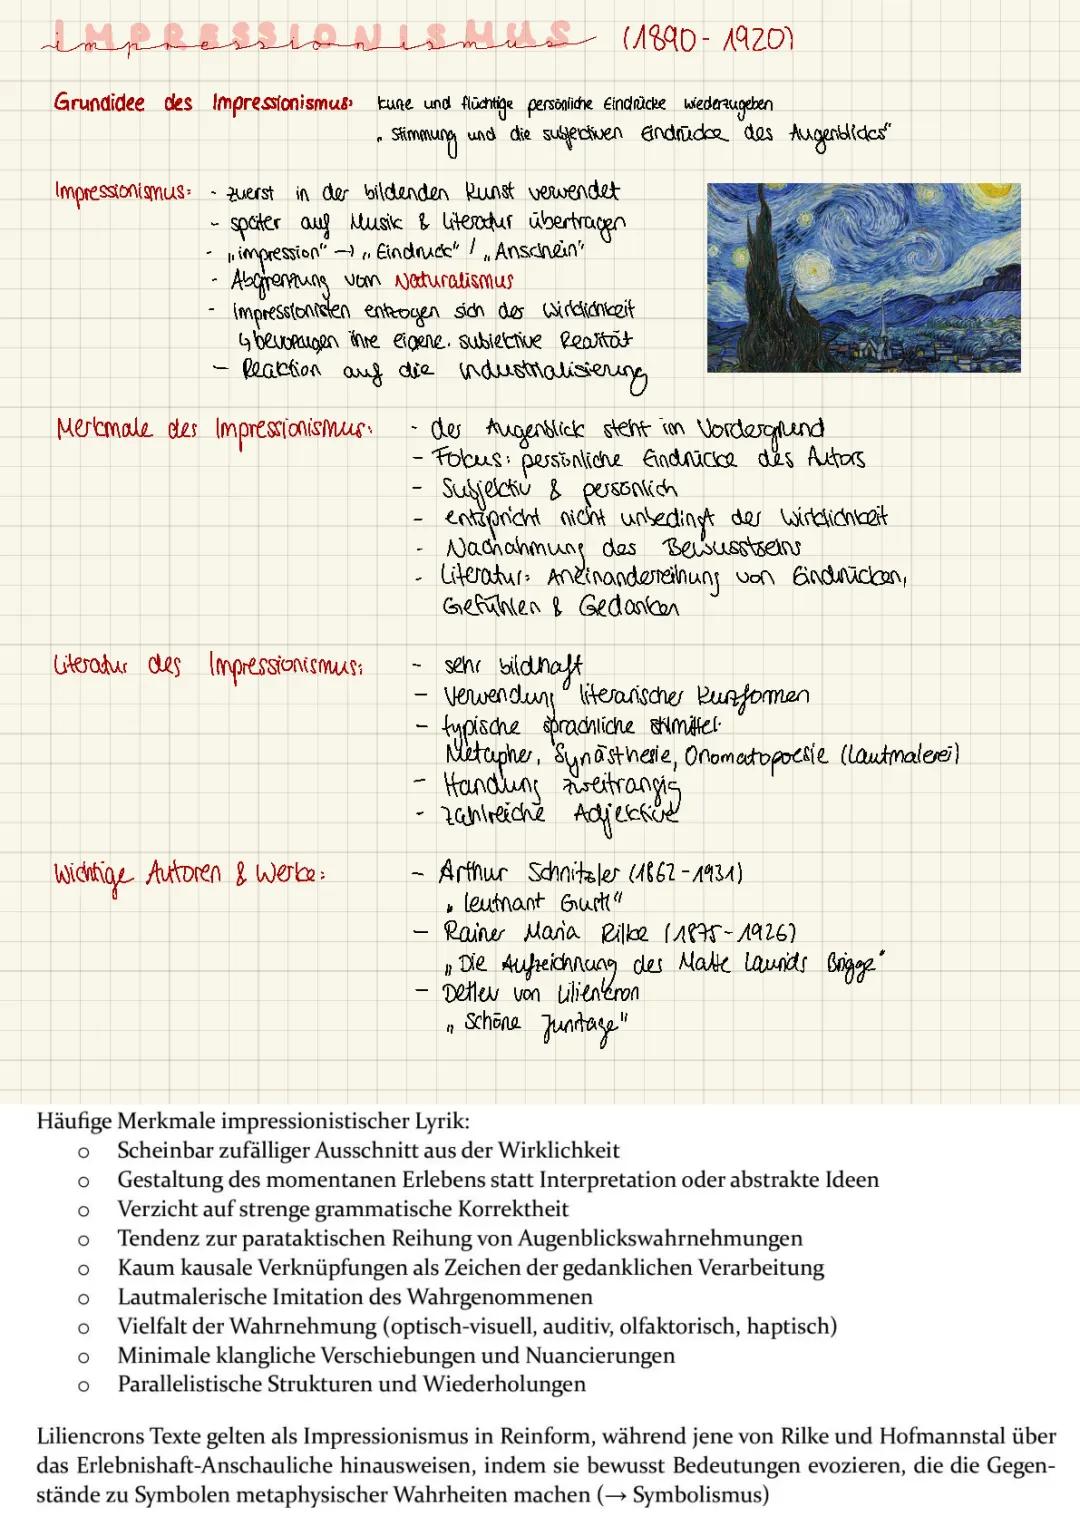 IMPRESSIONISMUS (1890-1920)
impressionismus
Grundidee des Impressionismus: kurze und flüchtige persönliche Eindrücke wiederzugeben
"Stimmung und die subjectiven Eindrücke des Augenblicks"
Impressionismus: - zuerst in der bildenden Kunst verwendet
- später auf Musik & Literatur übertragen
- "impression" → "Eindruck" / "Anschein"
- Abgrenzung vom Naturalismus
- Impressionisten entzogen sich der Wirklichkeit
↳ bevorzugen ihre eigene, subjektive Realität
- Reaktion auf die Industrialisierung
Merkmale des Impressionismus: - der Augenblick steht im Vordergrund
- Fokus: persönliche Eindrücke des Autors
- Subjektiv & persönlich
- entspricht nicht unbedingt der Wirklichkeit
- Nachahmung des Bewusstseins
- Literatur: Aneinanderreihung von Eindrücken,
Gefühlen & Gedanken
Literatur des Impressionismus: - sehr bildhaft
- Verwendung literarischer Kurzformen
- typische sprachliche Stilmittel:
Metapher, Synästhesie, Onomatopoesie (Lautmalerei)
- Handlung zweitrangig
- zahlreiche Adjektive
Wichtige Autoren & Werke: - Arthur Schnitzler (1862-1931)
"Leutnant Gustl"
- Rainer Maria Rilke (1875-1926)
"Die Aufzeichnung des Malte Laurids Brigge"
- Detlev von Liliencron
"Schöne Junitage"
Häufige Merkmale impressionistischer Lyrik:
o Scheinbar zufälliger Ausschnitt aus der Wirklichkeit
o Gestaltung des momentanen Erlebens statt Interpretation oder abstrakte Ideen
o Verzicht auf strenge grammatische Korrektheit
o Tendenz zur parataktischen Reihung von Augenblickswahrnehmungen
o Kaum kausale Verknüpfungen als Zeichen der gedanklichen Verarbeitung
o Lautmalerische Imitation des Wahrgenommenen
o Vielfalt der Wahrnehmung (optisch-visuell, auditiv, olfaktorisch, haptisch)
o Minimale klangliche Verschiebungen und Nuancierungen
o Parallelistische Strukturen und Wiederholungen
Liliencrons Texte gelten als Impressionismus in Reinform, während jene von Rilke und Hofmannstal über
das Erlebnishaft-Anschauliche hinausweisen, indem sie bewusst Bedeutungen evozieren, die die Gegen-
stände zu Symbolen metaphysischer Wahrheiten machen (→ Symbolismus)